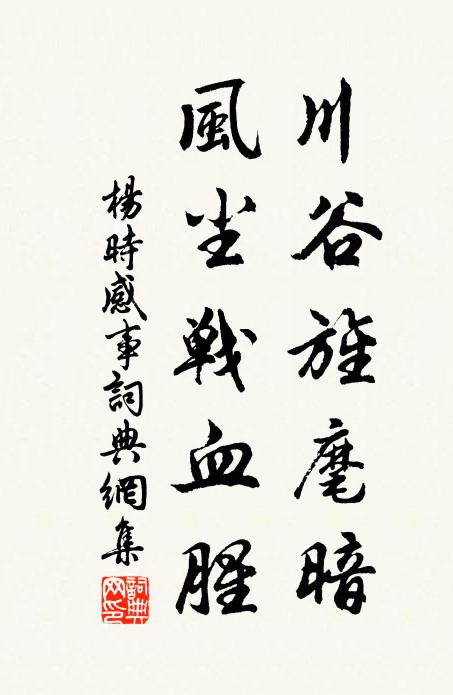 川谷旌麾暗
風尘戦血腥
楊時感事詞典網集
詞典网印